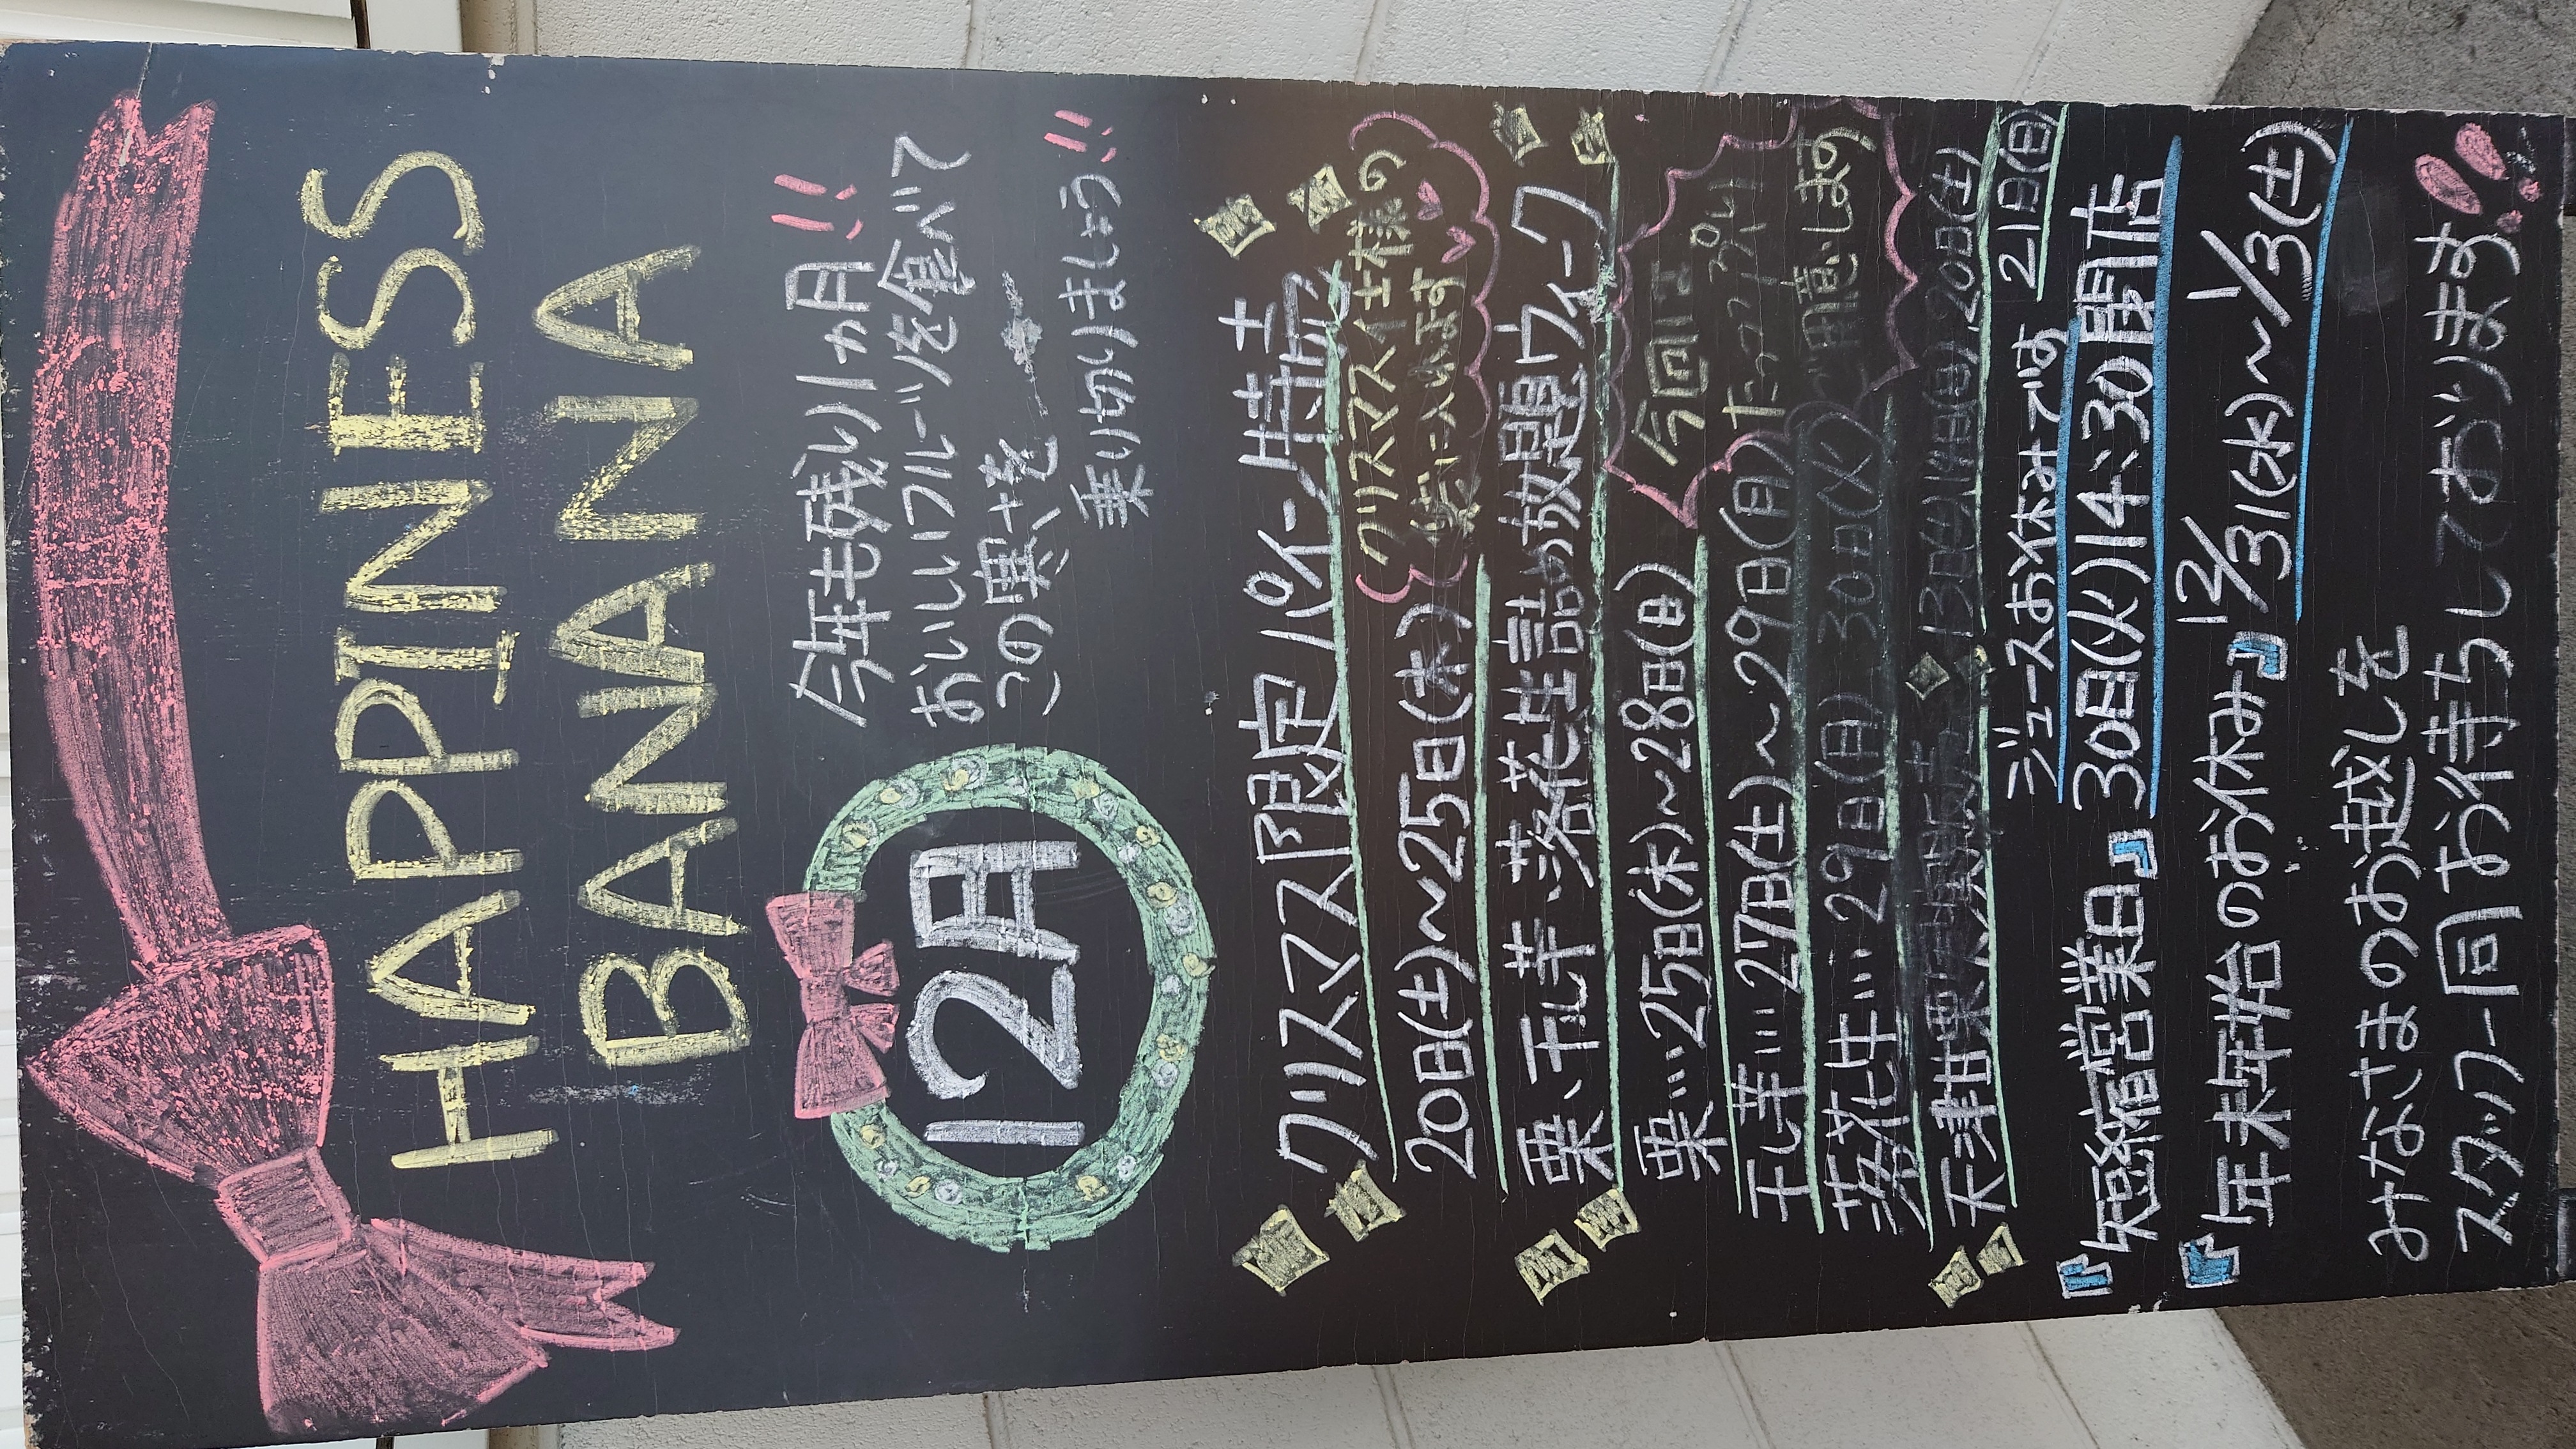 HAPPINESS
BANANA
12月
今年も残り1ヵ月!!
おいしいフルーツを食べて
この寒さを
乗り切りましょう!!
クリスマス限定パイナー特売
20日(土)~25日(木)
クリスマス仕様の
袋に入れます
栗、干し芋、落花生詰め放題ウィーク
栗…25日(木)~28日(日)
干し芋…27日(土)~29日(月)
落花生…29日(月)、30日(火)
今回は
たっぷり
ご用意します
天津甘栗実演販売
13日(土),14日(日),20日(土)
21日(日)
ジュースお休みです
『短縮営業日』30日(火)14:30閉店
『年末年始のお休み』12/31(水)~1/3(土)
みなさまのお越しを
スタッフ一同お待ちしております!!